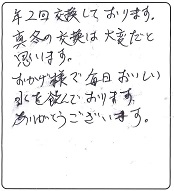 年2回交換して、おります。
真冬の交換は大変だと
思います。
おかげ様で毎日おいしい
水を飲んでおります。
ありがとうございます。